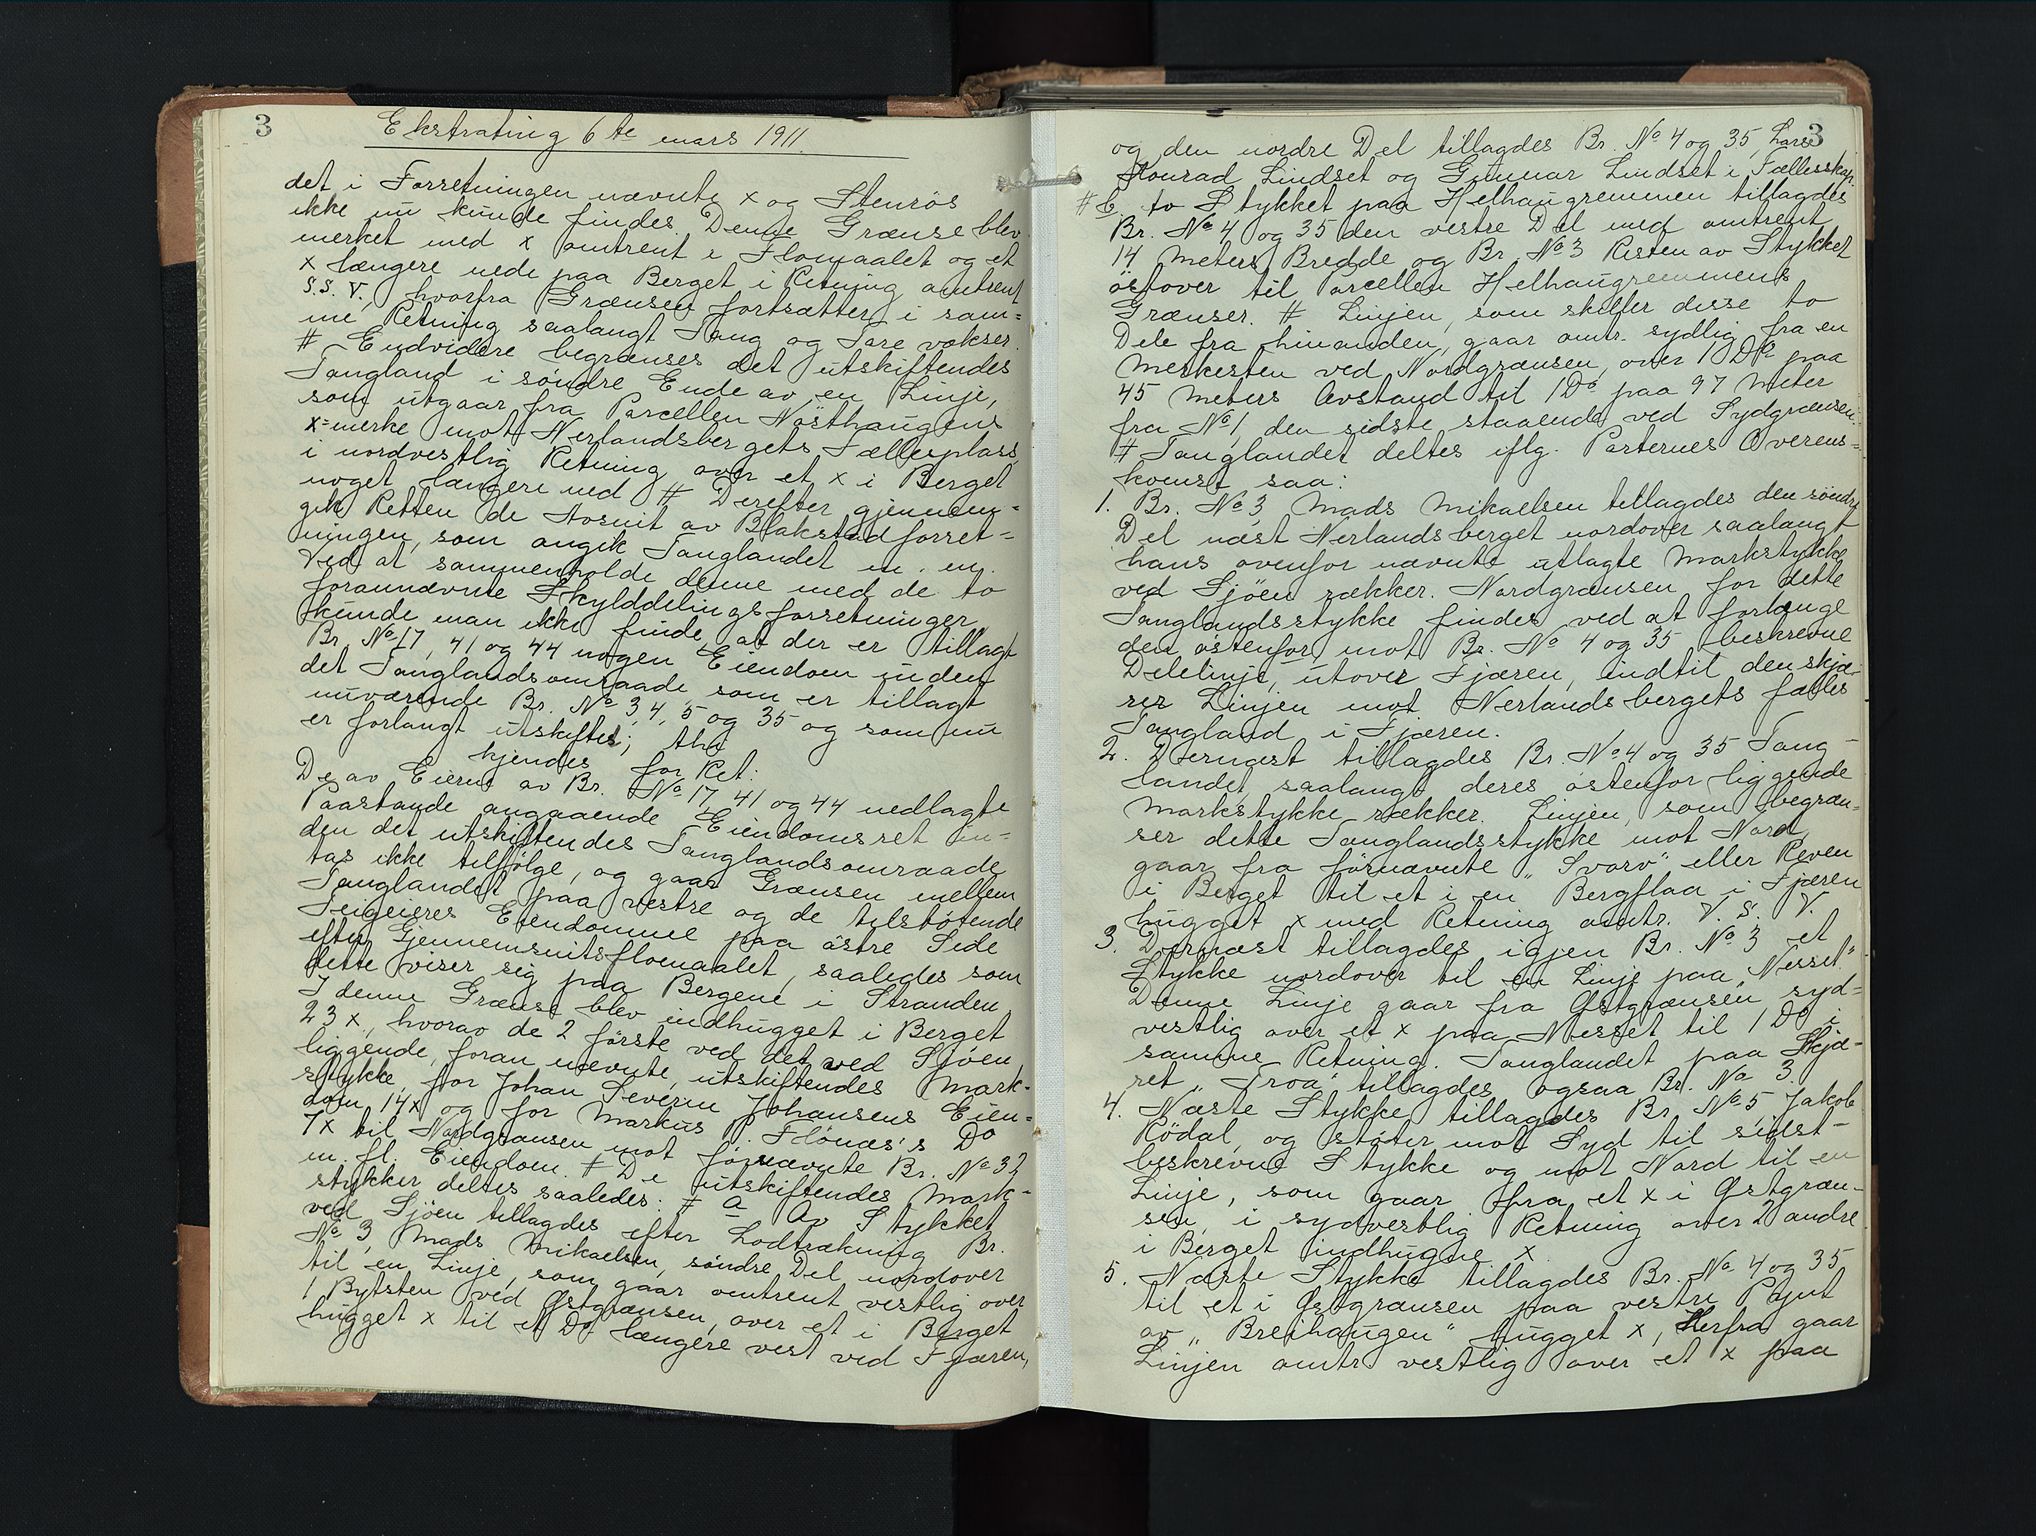 3
Ekstrating 6te mars 1911.
det i Forretningen nævnte x og Stenrøs
ikke nu kunde findes. Denne Grænse blev
merket med x omtrent i Flomaalet og et
x længere nede paa Berget i Retning omtrent
S.S.V., hvorfra Grænsen fortsætter i sam=
me Retning saalangt Tang og Tare vokser.
# Endvidere begrænses det utskiftendes
Tangland i søndre Ende av en Linje,
som utgaar fra Parcellen Nösthaugens
x-merke mot Nerlandsbergets Fællesplass
i nordvestlig Retning over et x i Berget
noget længere ned # Derefter gjennem=
gik Retten de Avsnit av Blakstadforret=
ningen, som angik Tanglandet m. m.
Ved at sammenholde denne med de to
forannævnte Skylddelingsforretninger
kunde man ikke finde, at der er tillagt
Br. No 17, 41 og 44 nogen Eiendom inden
det Tanglandsomraade som er tillagt
nuværende Br. No 3, 4, 5 og 35 og som nu
er forlangt utskiftet; thi
kjendes for Ret:
De av Eierne av Br. No 17, 41 og 44 nedlagte
Paastande angaaende Eiendomsret in=
den det utskiftendes Tanglandsomraade
tas ikke tilfølge, og gaar Grænsen mellem
Tanglandet paa vestre og de tilstøtende
Teigeieres Eiendomme paa östre Side
efter Gjennemsnitsfloemaalet, saaledes som
dette viser sig paa Bergene i Stranden
I denne Grænse blev indhugget i Berget
23 x, hvorav de 2 første ved det ved Sjöen
liggende, foran nævnte, utskiftendes Mark-
stykke, for Johan Severin Johansens Eien=
dom 14x og for Markus P. Flönæs's Do
7x til Nordgrænsen mot førnævnte Br. No 32
m. fl. Eiendom. # De utskiftendes Mark-
stykker deltes saaledes: # a Av Stykket
ved Sjöen tillagdes efter Lodtrækning Br.
No 3, Mads Mikaelsen, søndre Del nordover
til en Linje, som gaar omtrent vestlig over
1 Bytsten ved Østgrænsen, over et i Berget
hugget x til et Do længere vest ved Fjæren,
3
og den nordre Del tillagdes Br. No 4 og 35, Lars
Konrad Lindset og Gunnar Lindset i Fællesskap.
# b. to Stykket paa Helhaugremmen tillagdes
Br. No 4 og 35 den vestre Del med omtrent
14 Meters Bredde og Br. No 3 Resten av Stykket
östover til Parcellen Helhaugremmens
Grænser. # Linjen, som skiller disse to
Dele fra hinanden, gaar omtr. sydlig fra en
Merkesten ved Nordgrænsen, over 1 Do paa
45 Meters Avstand til 1 Do paa 97 Meter
fra No 1, den sidste staaende ved Sydgrænsen.
# Tanglandet deltes iflg. Parternes Overens=
komst saa:
1. Br. No 3, Mads Mikaelsen tillagdes den søndre
Del næst Nerlandsberget nordover saalangt
hans ovenfor nævnte utlagte Markstykke
ved Sjöen rækker. Nordgrænsen for dette
Tanglandsstykke findes ved at forlænge
den østenfor mot Br. No 4 og 35 beskrevne
Delelinje, utover Fjæren, indtil den skjæ-
rer Linjen mot Nerlandsbergets fælles
Tangland i Fjæren.
2. Dernæst tillagdes Br. No 4 og 35 Tang-
landet, saalangt deres østenfor liggende
Markstykke rækker. Linjen, som begræn-
ser dette Tanglandsstykke mot Nord,
gaar fra førnævnte "Svorv" eller Reven
i Berget til et i en Bergflaa i Fjæren
hugget x med Retning omtr. V. S. V.
3. Dernæst tillagdes igjen Br. No 3 et
Stykke nordover til en Linje paa "Nesset"
Denne Linje gaar fra Østgrænsen syd=
vestlig over et x paa Nesset til 1 Do i
samme Retning. Tanglandet paa Skjæ-
ret "Troa" tillagdes ogsaa Br. No 3.
4. Næste Stykke tillagdes Br. No 5 Jakob
Rödal, og støter mot Syd til sidst-
beskrevne Stykke og mot Nord til en
Linje, som gaar fra et x i Østgræn-
sen, i sydvestlig Retning over 2 andre
i Berget indhugne x
5. Næste Stykke tillagdes Br. No 4 og 35
til et i Østgrænsen paa vestre Pynt
av "Breihaugen" hugget x, Herfra gaar
Linjen omtr. vestlig over et x paa